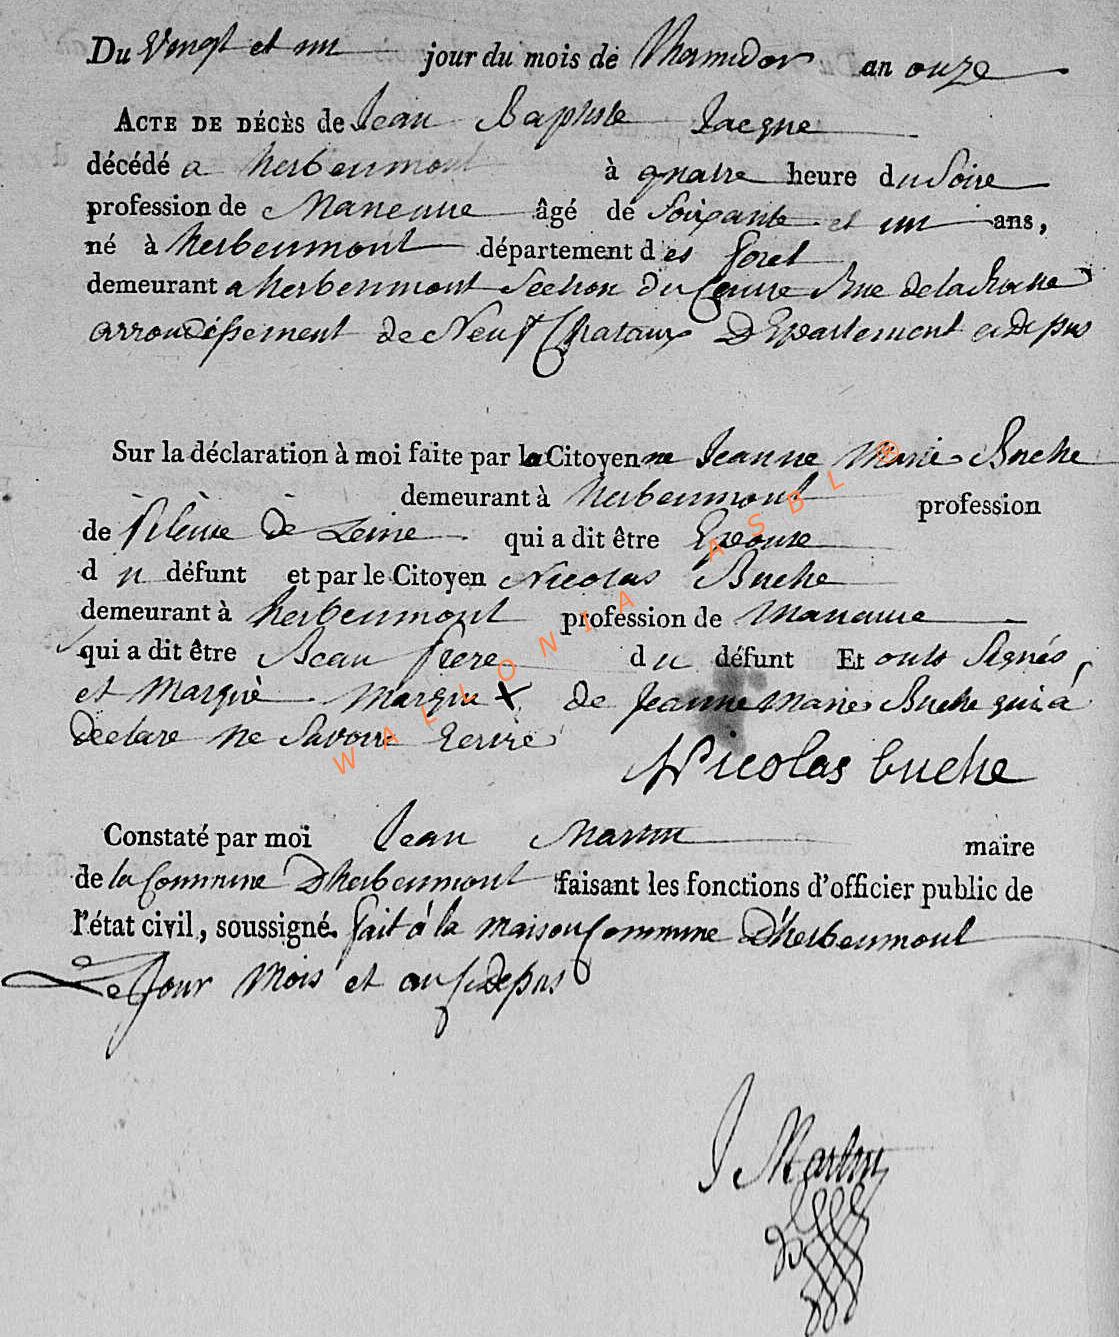 Du Vingt et un jour du mois de Thermidor an onze
ACTE DE DÉCÈS de Jean Baptiste Jacque
décédé a herbeumont à quatre heure du Soire
profession de Maneuvre âgé de Soixante et un ans,
né à herbeumont département des foret
demeurant a herbeumont Section du Centre Rue de la
arrondissement de Neufchataux Departement cidepus
Sur la déclaration à moi faite par la Citoyenne Jeanne Marie Buche
demeurant à herbeumont profession
de fileuse de Leine qui a dit être Epouse
du défunt et par le Citoyen Nicolas Buche
demeurant à herbeumont profession de Manauvre
qui a dit être Beau frere du défunt Et onts Signés
et Marqué Marque X de Jeanne Marie Buche qui à
declare ne Savoire Ecrire
Nicolas buche
Constaté par moi Jean Martin maire
de la Commune D'herbeumont faisant les fonctions d'officier public de
l'état civil, soussigné. fait à la maison Commune D'herbeumont
Le Jour Mois et an cidepus
J Martin
WALLONIA ASBL ®